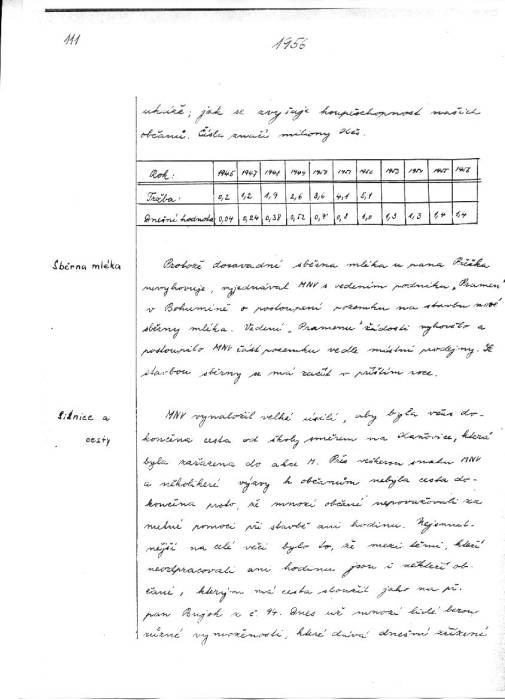 111
1956
ukáže; jak se zvyšuje koupěschopnost našich
občanů. Čísla značí miliony Kčs.
Rok: 1946 1947 1948 1949 1950 1951 1952 1953 1954 1955 1956
Tržba: 0,2 1,2 1,9 2,6 3,6 4,1 5,1
Dnešní hodnota: 0,04 0,24 0,38 0,52 0,8 1,0 1,3 1,3 1,4 1,4
Sběrna mléka
Protože dosavadní sběrna mléka u pana
nevyhovuje, vyjednával MNV s vedením podniku „Pramen"
v Bohumíně o postoupení pozemku na stavbu nové
sběrny mléka. Vedení „Pramenu" žádosti vyhovělo a
postoupilo MNV část pozemku vedle místní prodejny. Se
stavbou sběrny se má začít v příštím roce.
Silnice a
cesty
MNV vynaložil velké úsilí, aby byla včas do-
končena cesta od školy směrem na která
byla zařazena do akce M. Přes veškerou snahu MNV
a několikeré výzvy k občanům nebyla cesta do-
končena proto, že mnozí občané nepovažovali za
nutné pomoci při stavbě ani hodinu. Nejsmut-
nější na celé věci bylo to, že mezi těmi, kteří
neodpracovali ani hodinu jsou i někteří ob-
čané, kterým má cesta sloužit jako na př.
pan Bujok z č. 94. Dnes už mnozí lidé berou
různé vymoženosti, které dává dnešní zřízení